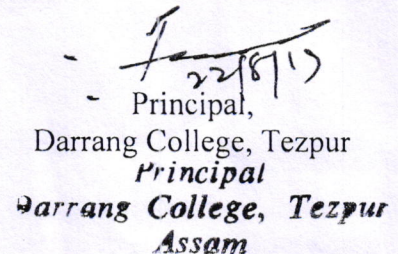 22/8/17
Principal,
Darrang College, Tezpur
Principal
Darrang College, Tezpur
Assam